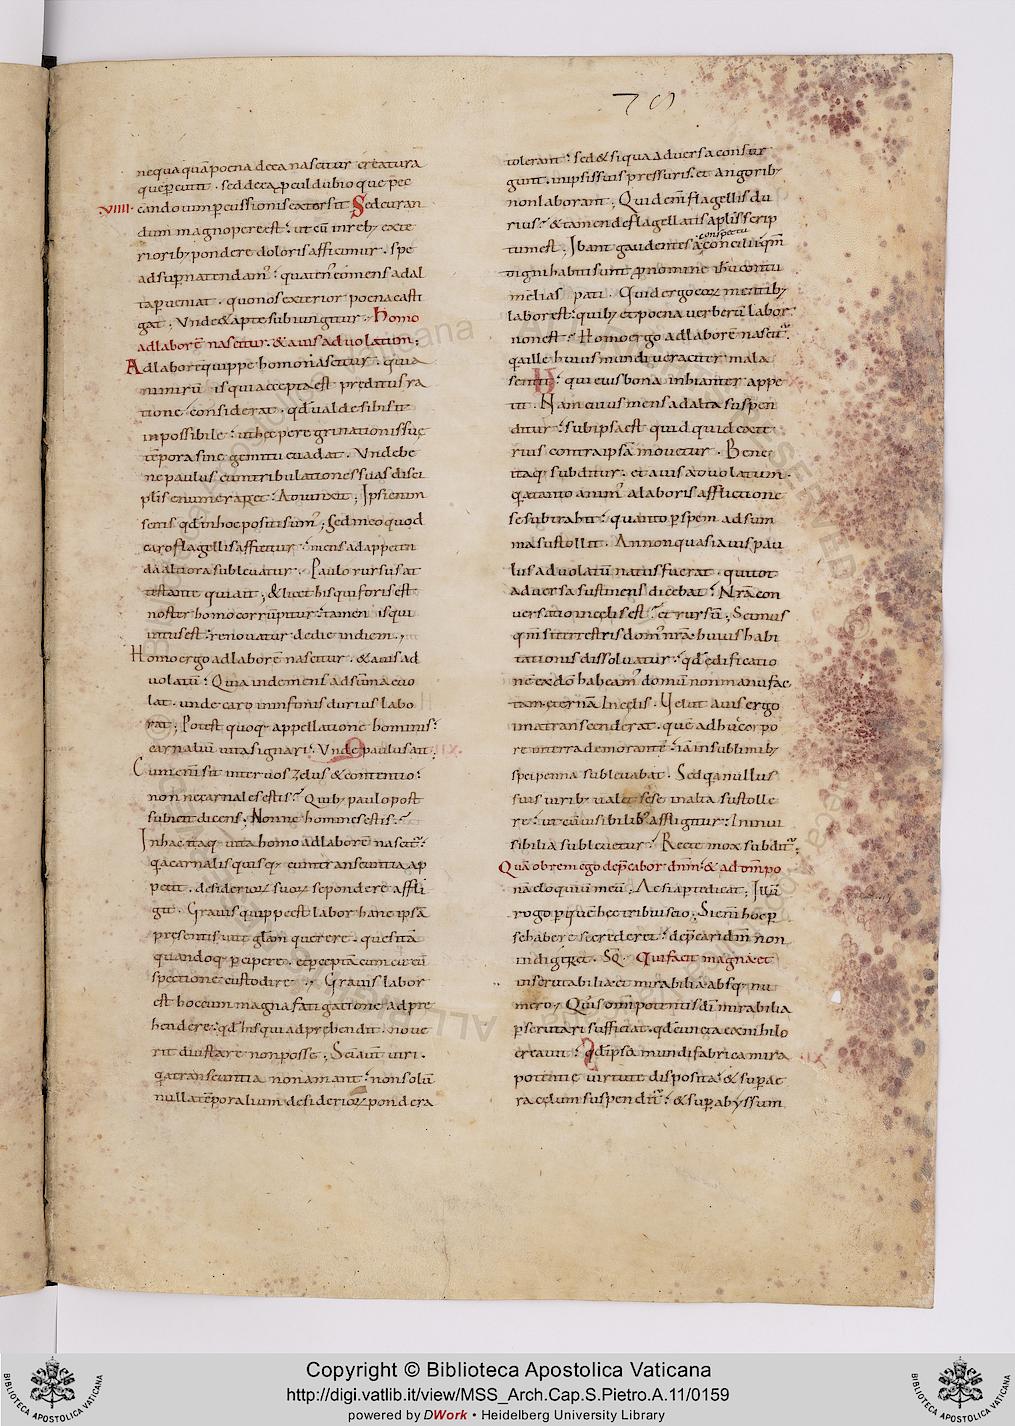 nequa quā poena de ea nascitur creatura
quę p̄cutit . sed de ea p̄cul dubio quę pec
VIIII. cando um p̄cussionis extorsit Sed curan
dum magnopere est : ut cū in reb; exte
riorib; pondere doloris afficimur . spe
ad sup̄na tendam' : quaten' eo mens ad al
ta p̄ueniat . quo nos exterior poena casti
gat . Vnde & apte subiungitur . Homo
ad laborē nascitur . & auis ad volatum ;
Ad laborē quippe homo nascitur . quia
nimirū is qui accepta est preditus ra
tione considerat . qđ valde sibi sit
inpossibile : ut hec peregrinationis suę
tēpora sine gemitu euadat . Vnde be
ne paulus cum tribulationes suas disci
plis enumeraret : Adiunxit ; Ipsi enim
scitis qđ in hoc positi sum' ; Sed in eo quod
caro flagellis afficitur : mens ad appeten
da altiora subleuatur . Paulo rursus at
testante qui ait ; & licet his qui foris est
noster homo corrūpitur : tamen is qui
intus est : renouatur de die in diem .,
Homo ergo ad laborē nascitur . & auis ad
uolatū : Quia inde mens ad sūma euo
lat . unde caro in infimis durius labo
rat ; Potest quoq; appellatione hominis :
carnaliū uita signari : Vnde paulus ait :
Cum enī sit inter uos zelus & contentio :
non ne carnales estis ? Quib; paulo post
subiecit dicens ; Nonne homines estis :
In hac itaq; uita homo ad laborē nascit' :
q̄a carnalis quisq; cum transeuntia ap
petit . desideriorū suorū se pondere affli
git . Grauis quippe est labor hanc ipsā
presentis uitę glām querere . quesitā
quandoq; p̄cipere . et p̄ceptā cum circū
spectione custodire ., Grauis labor
est hoc cum magna fatigatione adpre
hendere : qđ his qui adprehendit . noue
rit diu stare non posse ; Scī autē uiri .
q̄a transeuntia non amant : non solū
nulla tēporalium desideriorū pondera
tolerant : sed & siqua aduersa consur
gunt . in ipsis suis pressuris . et angorib;
non laborant ; Quid enī flagellis du
rius ? & tamen de flagellatis aplis scrip
tum est ; Ibant gaudentes a conspectu concilii qm̄
digni habiti sunt p̄ nomine ihū contu
melias pati . Quid ergo eorū mentib;
labor est : quib; et poena uerberū labor
non est : Homo ergo ad laborē nascit' .
q̄a ille huius mundi ueraciter mala
sentit : qui eius bona inhianter appe
tit . Nam cuius mens ad alta suspen
ditur : sub ipsa est quid quid exte
rius contra ipsā mouetur . Bene
itaq; subditur . et auis ad uolatum .
q̄a tanto anim' a laboris afflictione
se subtrahit : quanto p̄ spem ad sum
ma sustollit . An non quasi auis pau
lus ad uolatū natus fuerat . qui tot
aduersa sustinens dicebat : Nrā con
uersatio in cęlis est : et rursū ; Scimus
qm̄ si terrestris dom' nrā huius habi
tationis dissoluatur : qđ edificatio
nē ex dō habeam' domū non manu fac
tam . eternā in cęlis . Velut auis ergo
ima transcenderat . quē adhuc corpo
re in terra demorantē : iā in sublimib;
spei penna subleuabat . Sed q̄a nullus
suis uirib; ualet sese in alta sustolle
re : ut cū uisibilib' affligitur : In inui
sibilia subleuetur ; Recte mox subdit' ;
Quā obrem ego dep̄cabor dnm̄ : & ad dm̄ po
nā eloquiū meū ; Ac si ap̄tē dicat ; Illū
rogo p̄ quē hęc tribui scio ; Si enī hoc p̄
se habere se crederet : dep̄cari dm̄ non
indigeret . SQ' . Qui facit magna et
inscrutabilia et mirabilia absq; nu
mero ; Quis omīpotentis dī mirabilia
p̄scrutari sufficiat . qđ cuncta ex nihilo
creauit : qđ ipsa mundi fabrica mira
potentię uirtute disposita : & sup̄ ae
ra cęlum suspendit' : & sup̄ abyssum
Copyright © Biblioteca Apostolica Vaticana
http://digi.vatlib.it/view/MSS_Arch.Cap.S.Pietro.A.11/0159
powered by DWork • Heidelberg University Library